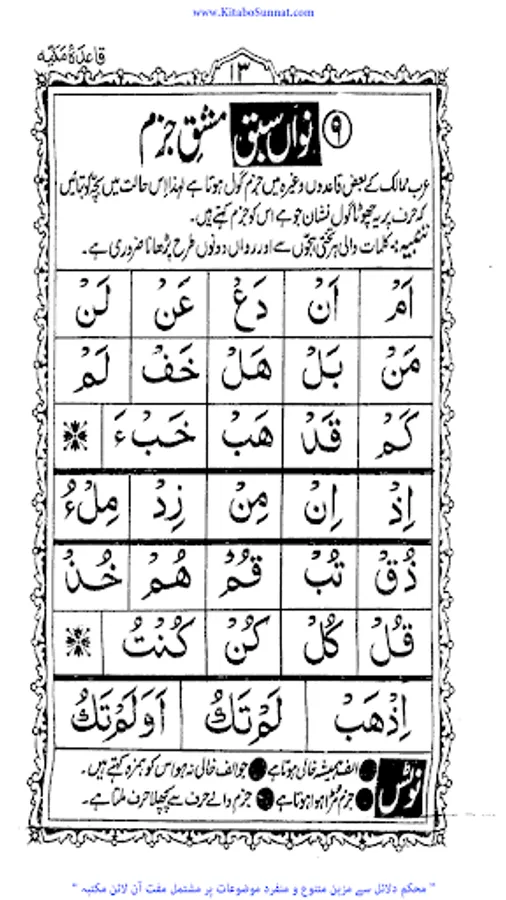 www.KitaboSunnat.com
قاعدہ مکیّہ
١٣
٩ نواں سبق مشقِ جزم
عرب ممالک کے بعض قاعدوں وغیرہ میں جزم گول ہوتا ہے لہٰذا اس حالت میں بچّہ کو بتائیں
کہ حرف پر یہ چھوٹا گول نشان جو ہے اس کو جزم کہتے ہیں۔
تنبیہ: کلمات والی ہر تختی ہجّوں سے اور رواں دونوں طرح پڑھانا ضروری ہے۔
اَمْ اَنْ دَعْ عَنْ لَنْ
مَنْ بَلْ هَلْ خَفْ لَمْ
كَمْ قَدْ هَبْ خَبْءَ
اِذْ اِنْ مِنْ زِدْ مِلْءُ
ذُقْ تُبْ قُمْ هُمْ خُذْ
قُلْ كُلْ كُنْ كُنْتُ
اِذْهَبْ لَمْ تَكُ اَوَلَمْ تَكُ
نوٹس الف ہمیشہ خالی ہوتا ہے جو الف خالی نہ ہو اس کو ہمزہ کہتے ہیں۔
جزم مڑا ہوا ہوتا ہے جزم والے حرف سے پچھلا حرف ملتا ہے۔
" محکم دلائل سے مزین متنوع و منفرد موضوعات پر مشتمل مفت آن لائن مکتبہ "